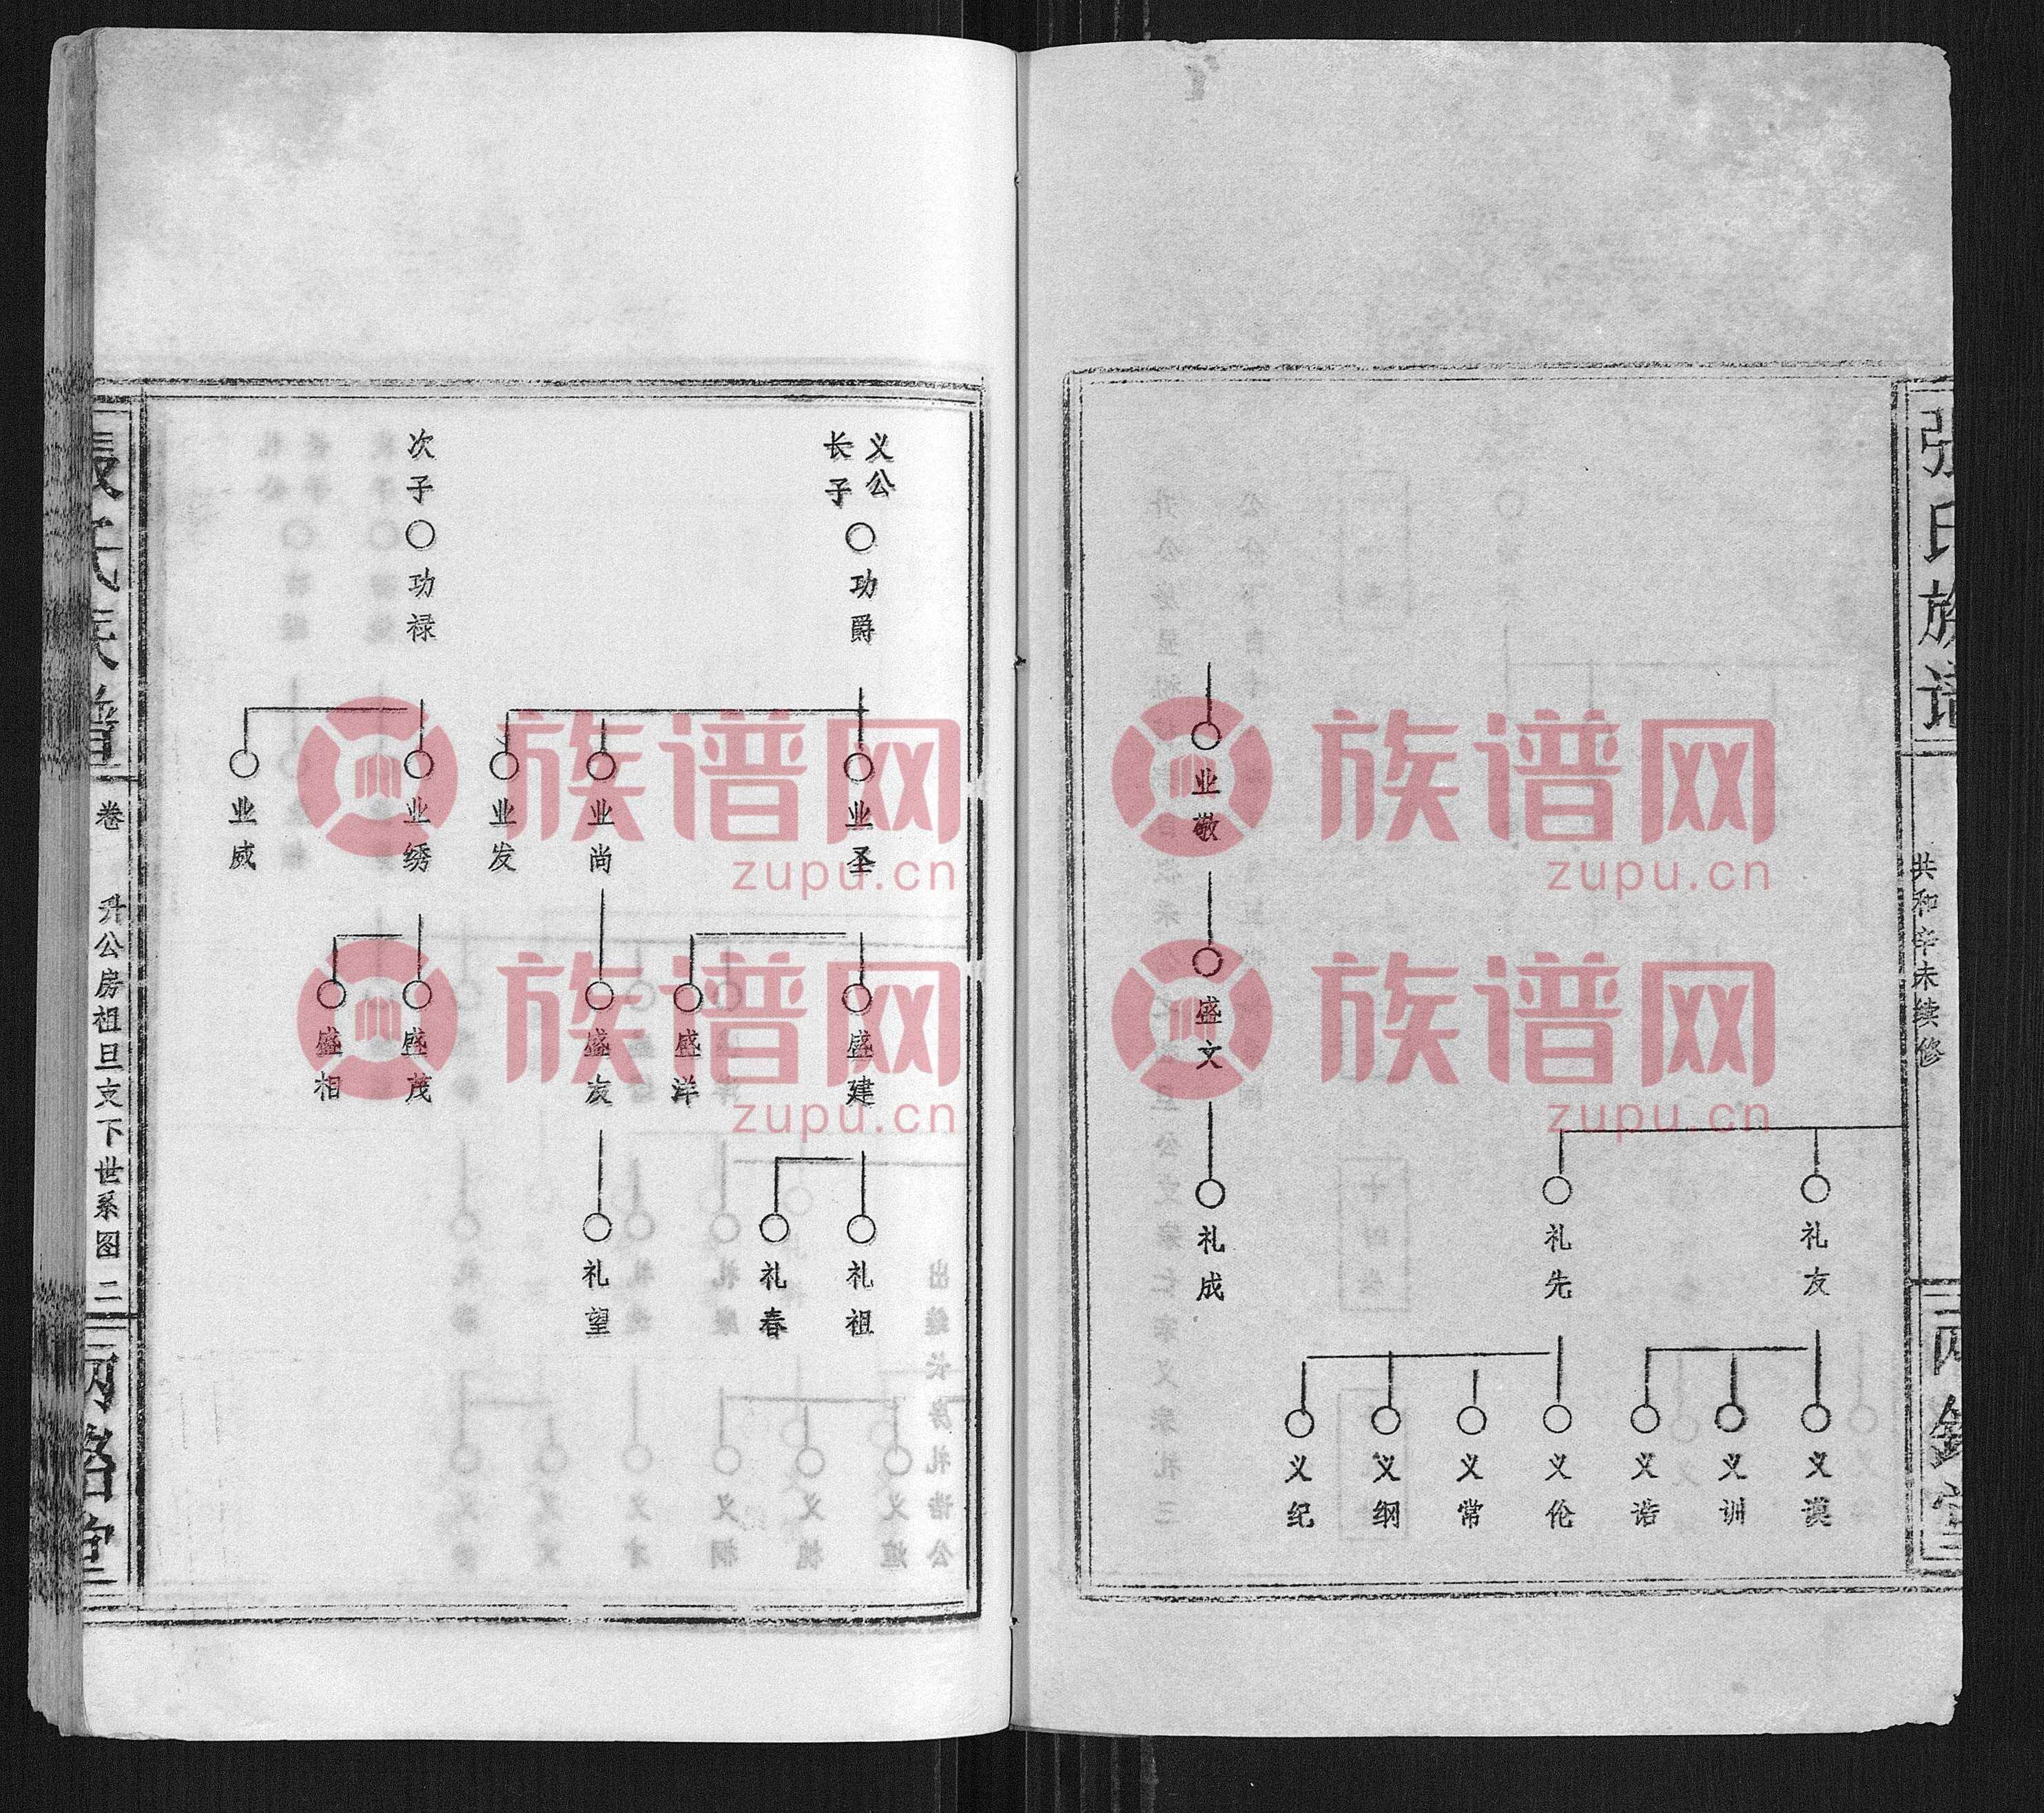 张氏族谱
共和辛未续修
两铭堂
礼友
礼先
义谟
义训
义诰
义伦
义常
义纲
义纪
业敬
盛文
礼成
义公
长子
功爵
业圣
业尚
业发
盛建
盛洋
盛友
礼祖
礼春
礼望
次子
功禄
业绣
业威
盛茂
盛相
张氏族谱
卷
升公房祖旦支下世系图
二
两铭堂
族谱网
zupu.cn
族谱网
zupu.cn
族谱网
zupu.cn
族谱网
zupu.cn